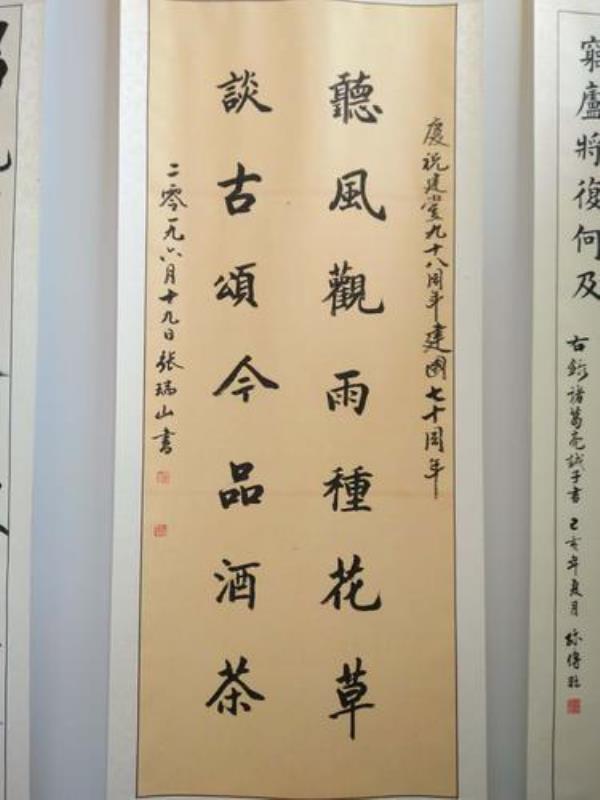 慶祝建黨九十八周年建國七十周年
聽風觀雨種花草
談古頌今品酒茶
二零一九六月十九日張瑞山書
窮廬將復何及
右錄諸葛亮誡子書己亥年夏月